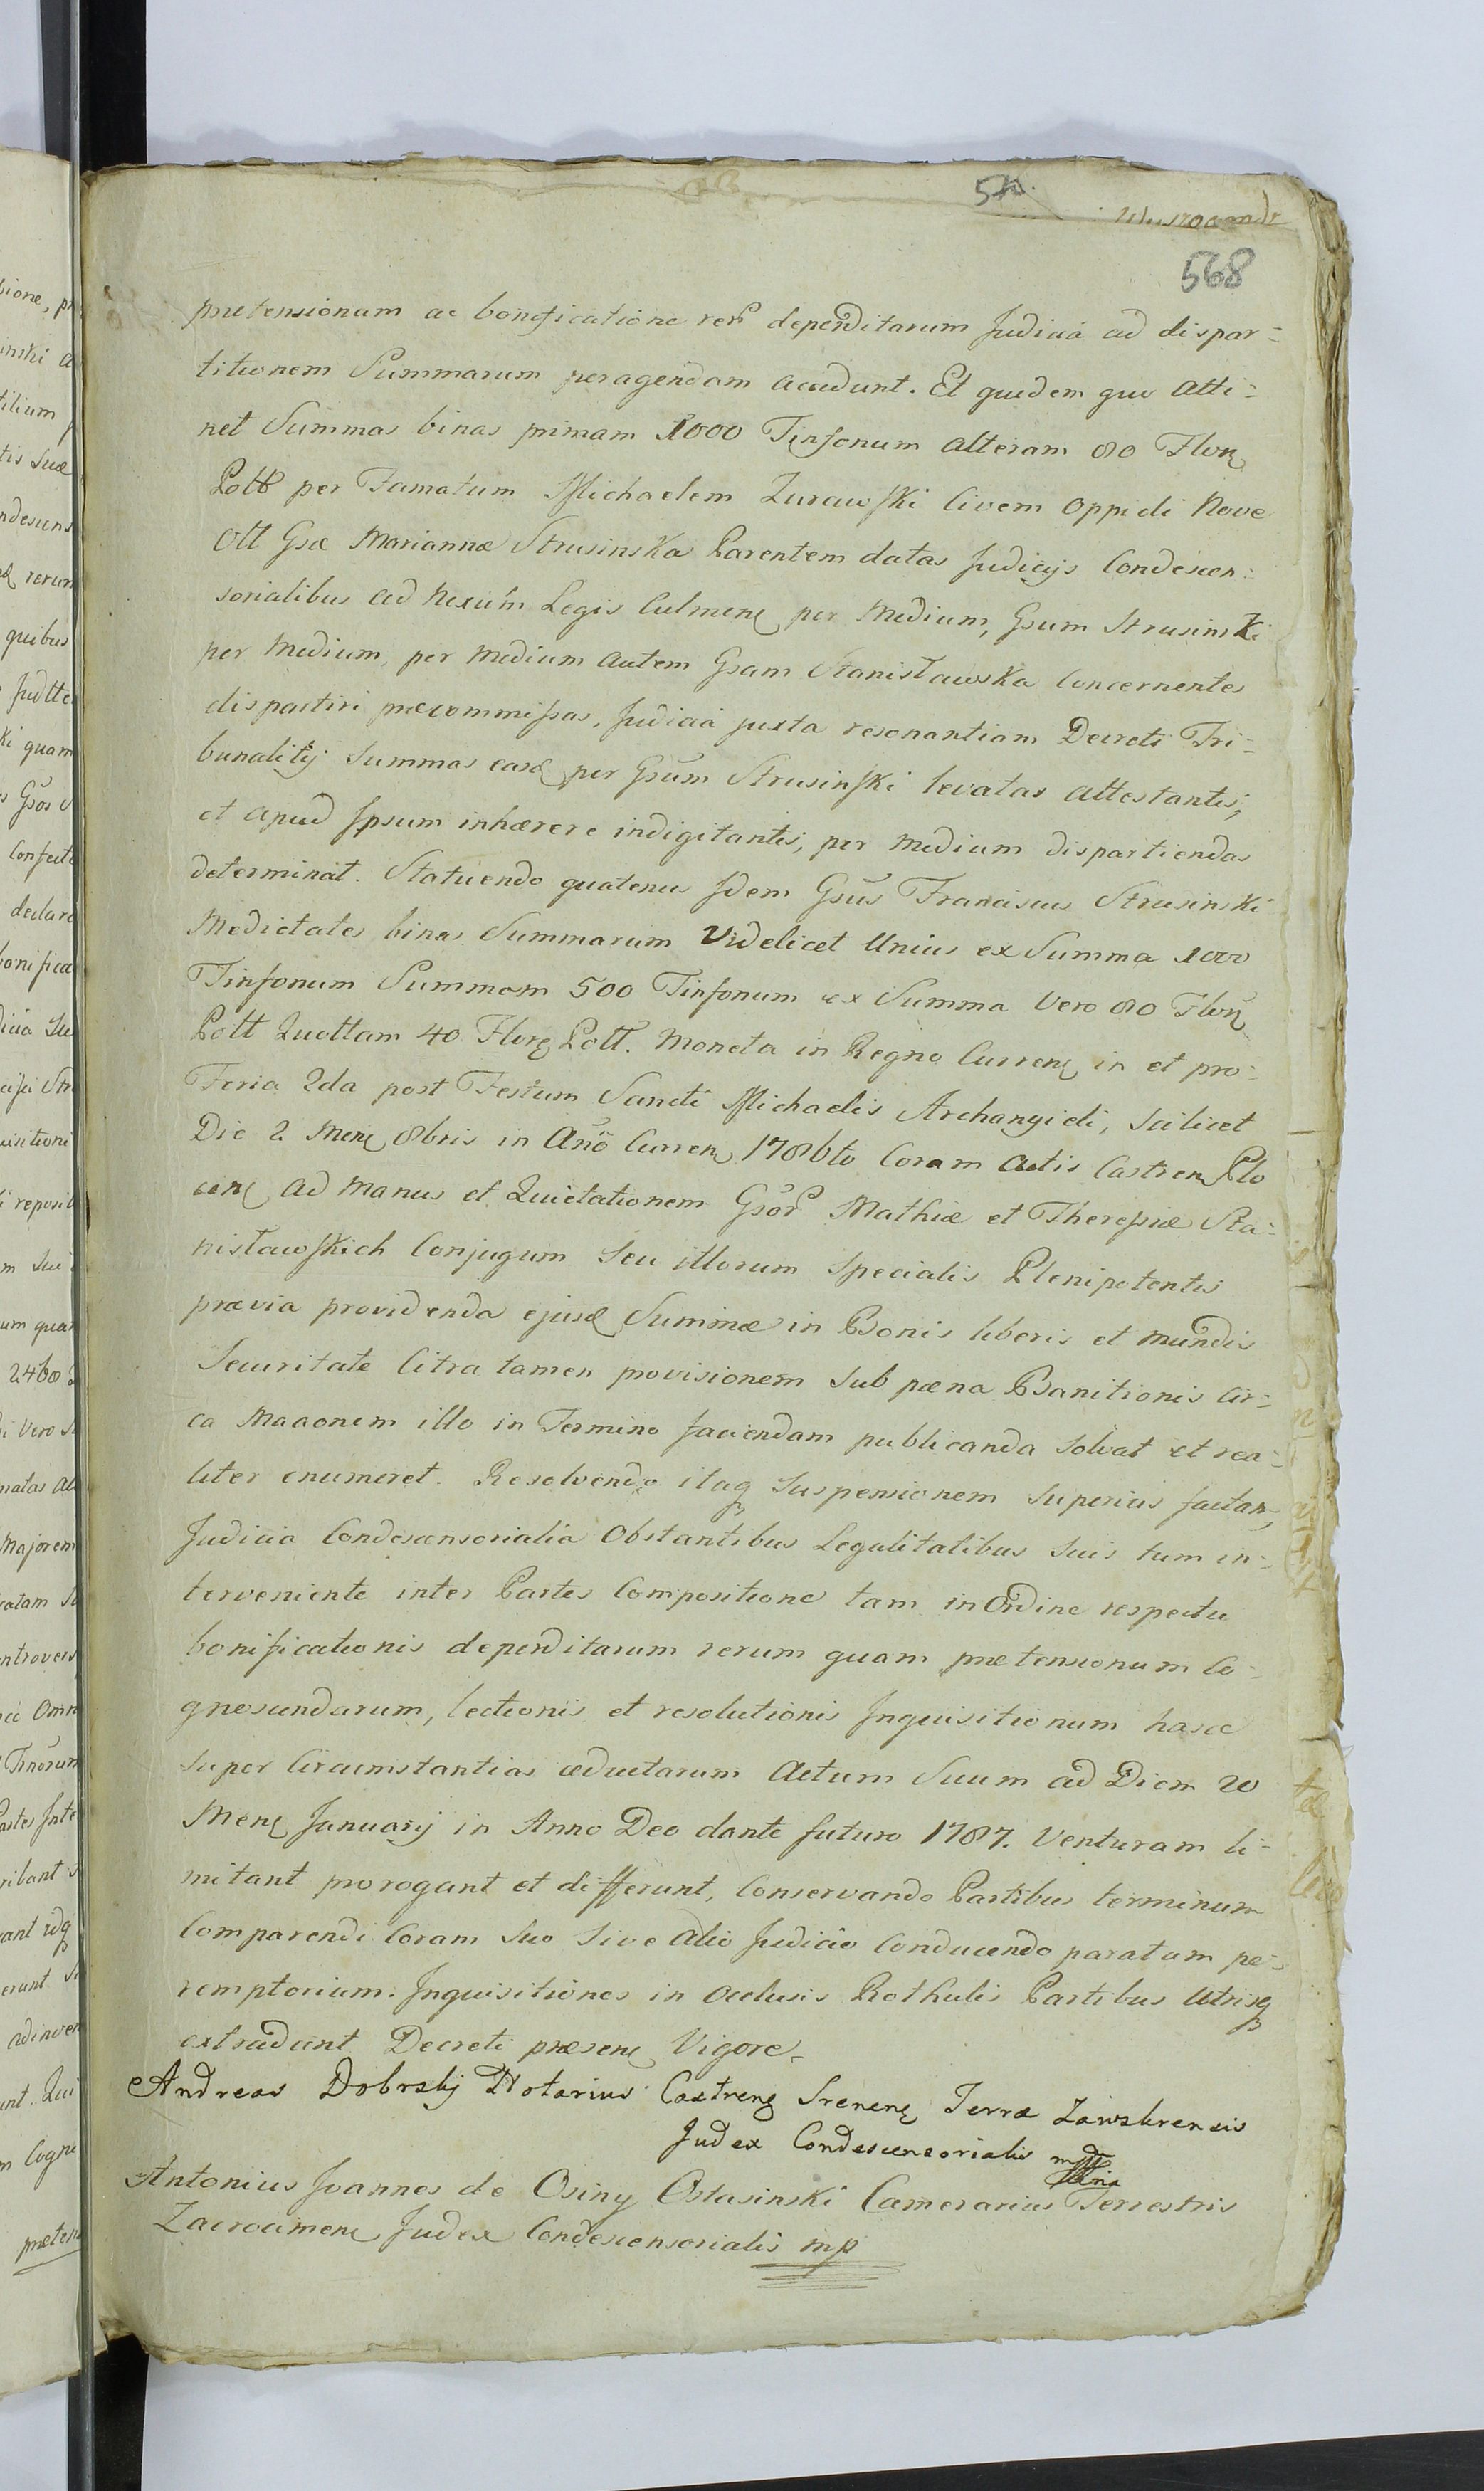 568
prætensionum ac bonificatione rer̃ deperditarum Judicia ad dispar=
titionem Summarum peragendam accedunt. Et quidem quo atti=
net Summas binas primam 1000 Tinfonum alteram 80 Flor̃
Poll per Famatum Michaelem Zurawski Civem Oppidi Nove
Gsæ Mariannæ Strusinska Parentem datas Judicijs Condescen=
sorialibus ad nexum Legis Culmen̄ per Medium, Gsum Strusinski
per Medium, per Medium autem Gsam Stanisławska Concernentes
dispartiri præcommissas, Judicia juxta resonantiam Decreti Tri=
bunalitij Summas easd per Gsum Strusinski levatas attestantis,
et apud Ipsum inhærere indigitantis, per medium dispartiendas
determinat. Statuendo quatenus Idem Gsus Franciscus Strusinski
Medietates binas Summarum Videlicet Unius ex Summa 1000
Tinfonum Summam 500 Tinfonum ex Summa Vero 80 Flor̃
Poll Quottam 40 Flor̃ Poll. Moneta in Regno Curren̄ in et pro
Feria 2da post Festum Sancti Michaelis Archangieli, scilicet
Die 2 Men̄ 8bris in Año Curren̄ 1786to Coram Actis Castren̄ Plo
cen̄ ad Manus et Quietationem Gsor̃ Mathiæ et Theresiæ Sta=
nisławskich Conjugum seu illorum specialis Plenipotentis
prævia providenda ejusd Summæ in Bonis liberis et mundis
Securitate Citra tamen provisionem sub pœna Banitionis Cir=
ca illo in Termino faciendam publicanda solvat et rea=
liter enumeret. Resolvendo itaq suspensionem superius factam,
Judicia Condescensorialia Obstantibus Legalitatibus suis tum in=
terveniente inter Partes Compositione tam in Ordine respectu
bonificationis deperditarum rerum quam prætensionum Co=
gnoscendarum, lectionis et resolutionis Inquisitionum hasce
super Circumstantias eductarum Actum Suum ad Diem 20
Men̄ Januarij in Anno Deo dante futuro 1787. Venturam li=
mitant prorogant et differunt, Conservando Partibus terminum
Comparendi Coram suo sive alio Judicio Conducendo paratum pe=
remptorium. Inquisitiones in occlusis Rothulis Partibus Utrisq
extradunt Decreti præsen̄ Vigore.
Andreas Dobrskj Notarius Castren̄ Srenen̄ Terræ Zawskrensis
Judex Condescensorialis mpp
Antonius Joannes de Osiny Ostasinski Camerarius Terrestris
Zacrocimen̄ Judex Condescensorialis mp